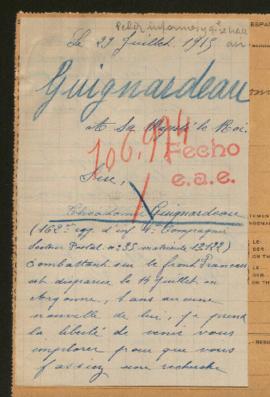 Pedir informes y
Le 29 Juillet 1915
Guignardeau
A Sa Majesté le Roi
106.994
Fecho
e.a.e.
Sire,
Guignardeau
(162e reg d'inf 4e Compagnie
Secteur Postal no 35 matricule 12122)
combattant sur le front Français
est disparu le 14 Juillet en
Argonne, sans aucune
nouvelle de lui, je prend
la liberté de venir vous
implorer pour que vous
fassiez une recherche